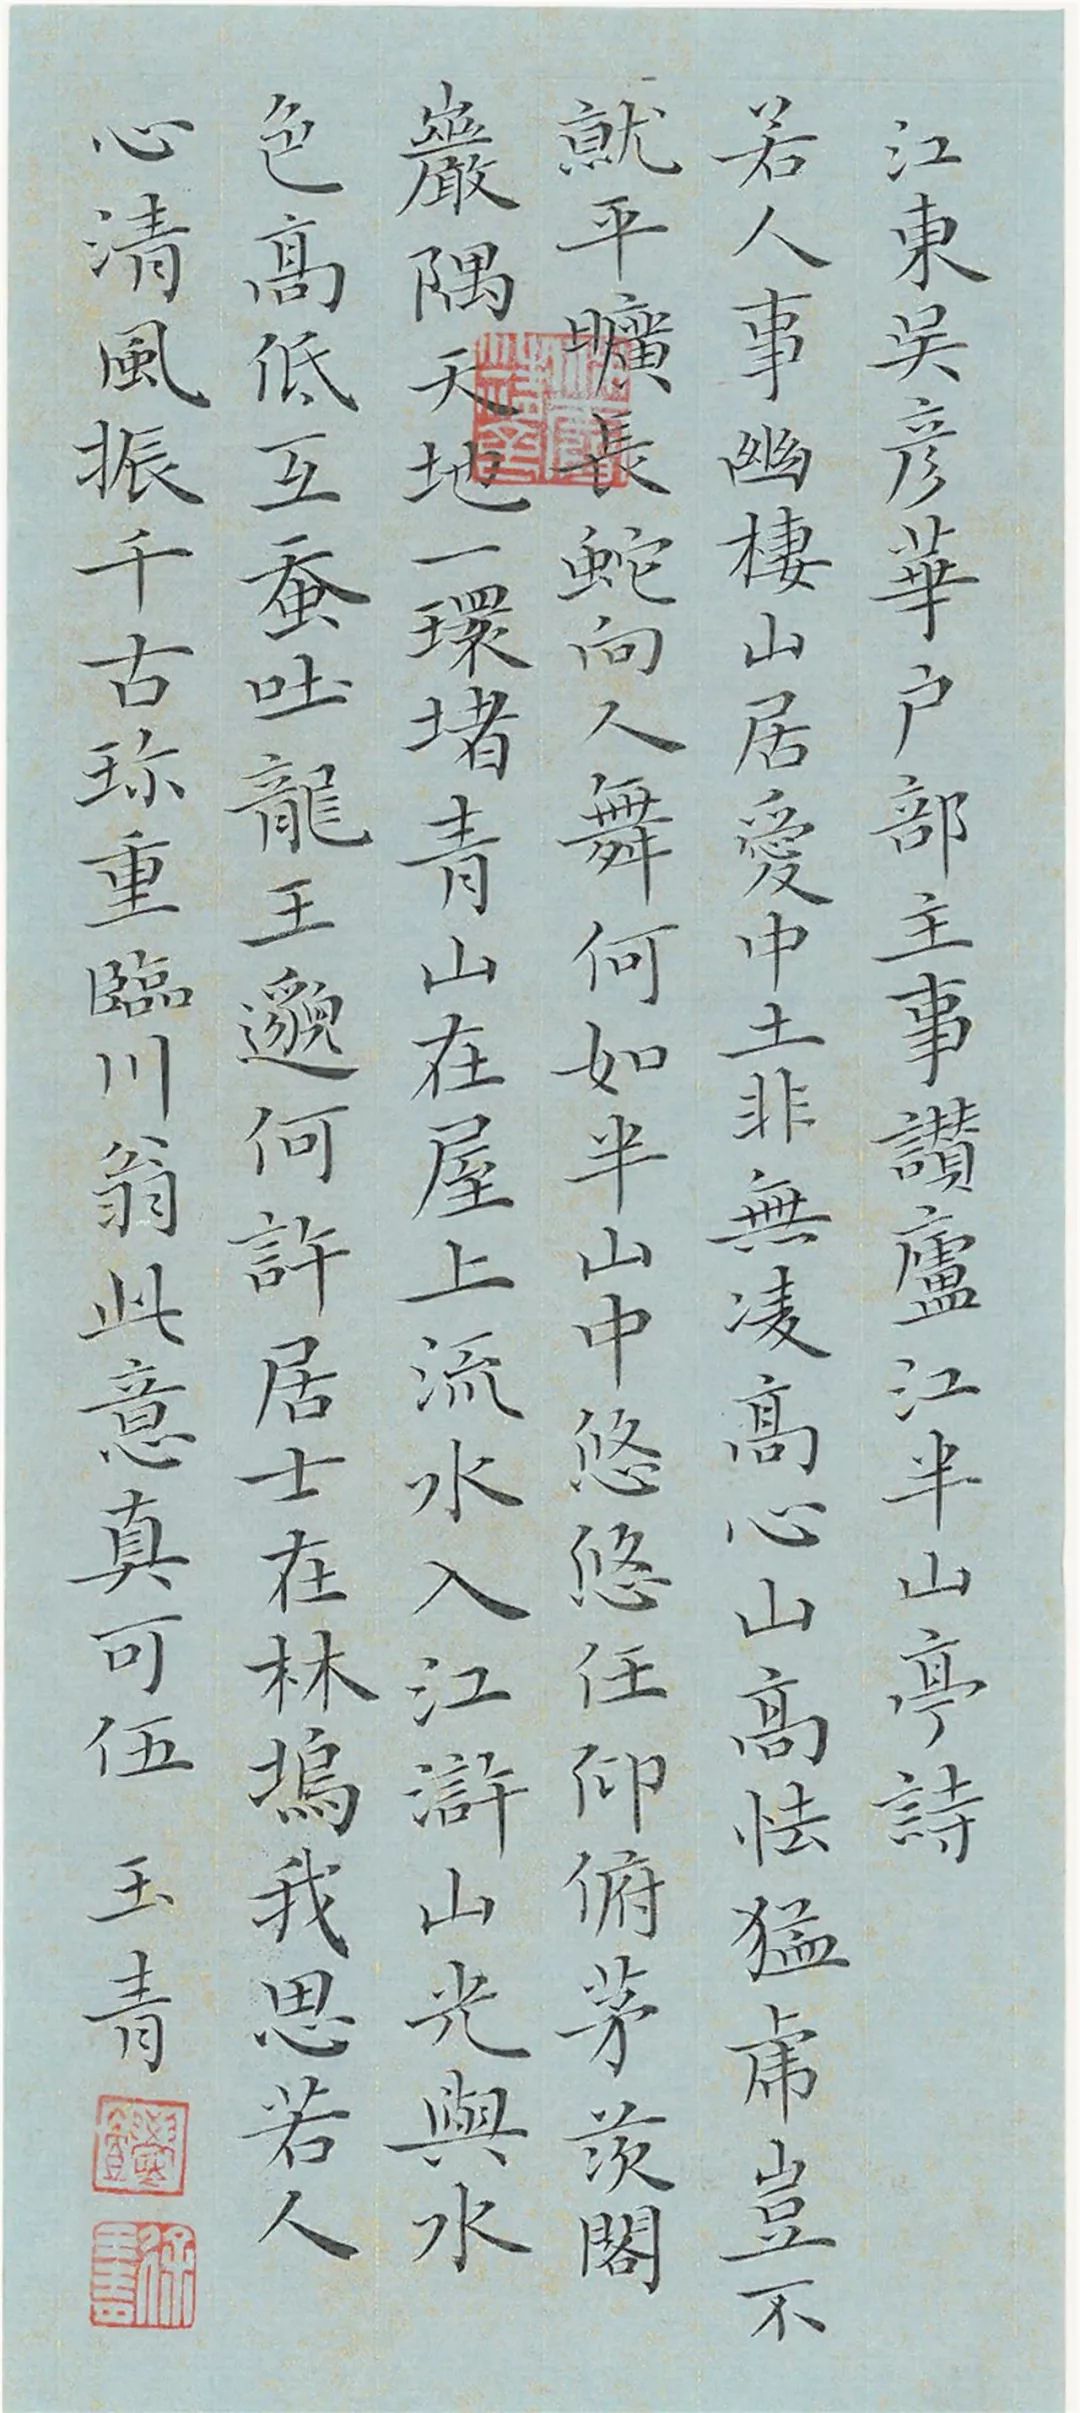 江東吴彦華户部主事讃廬江半山亭詩
若人事幽棲山居愛中土非無凌高心山高怯猛虎豈不
就平曠長蛇向人舞何如半山中悠悠任仰俯茅茨閣
巖隅天地一環堵青山在屋上流水入江滸山光與水
色高低互吞吐龍王邈何許居士在林塢我思若人
心清風振千古珎重臨川翁此意真可伍 玉青